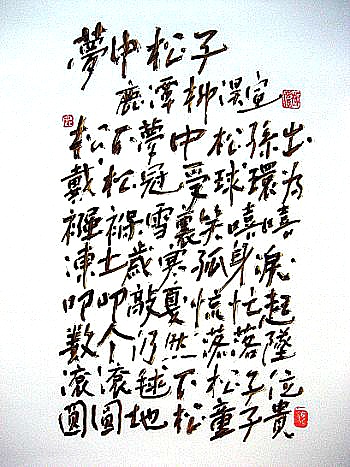 夢中松子
鹿潭柳淏宣
松下夢中松孫出
戴松冠受球環為
襁褓雪裏笑嘻嘻
凍土歲寒孤身淚
叩叩敲慌忙起
数个仍然落落墜
滾滾毬下松子位
圓圓地松童子貴